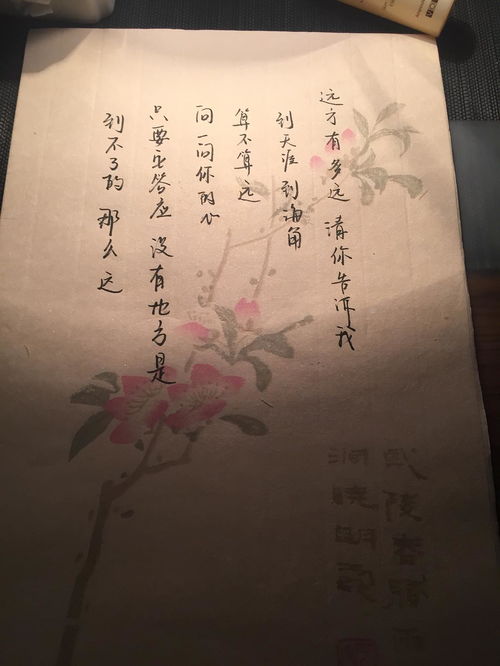 远方有多远 请你告诉我
到天涯到海角
算不算远
问一问你的心
只要它答应 没有地方是
到不了的 那么远
武陵春
洞晓明